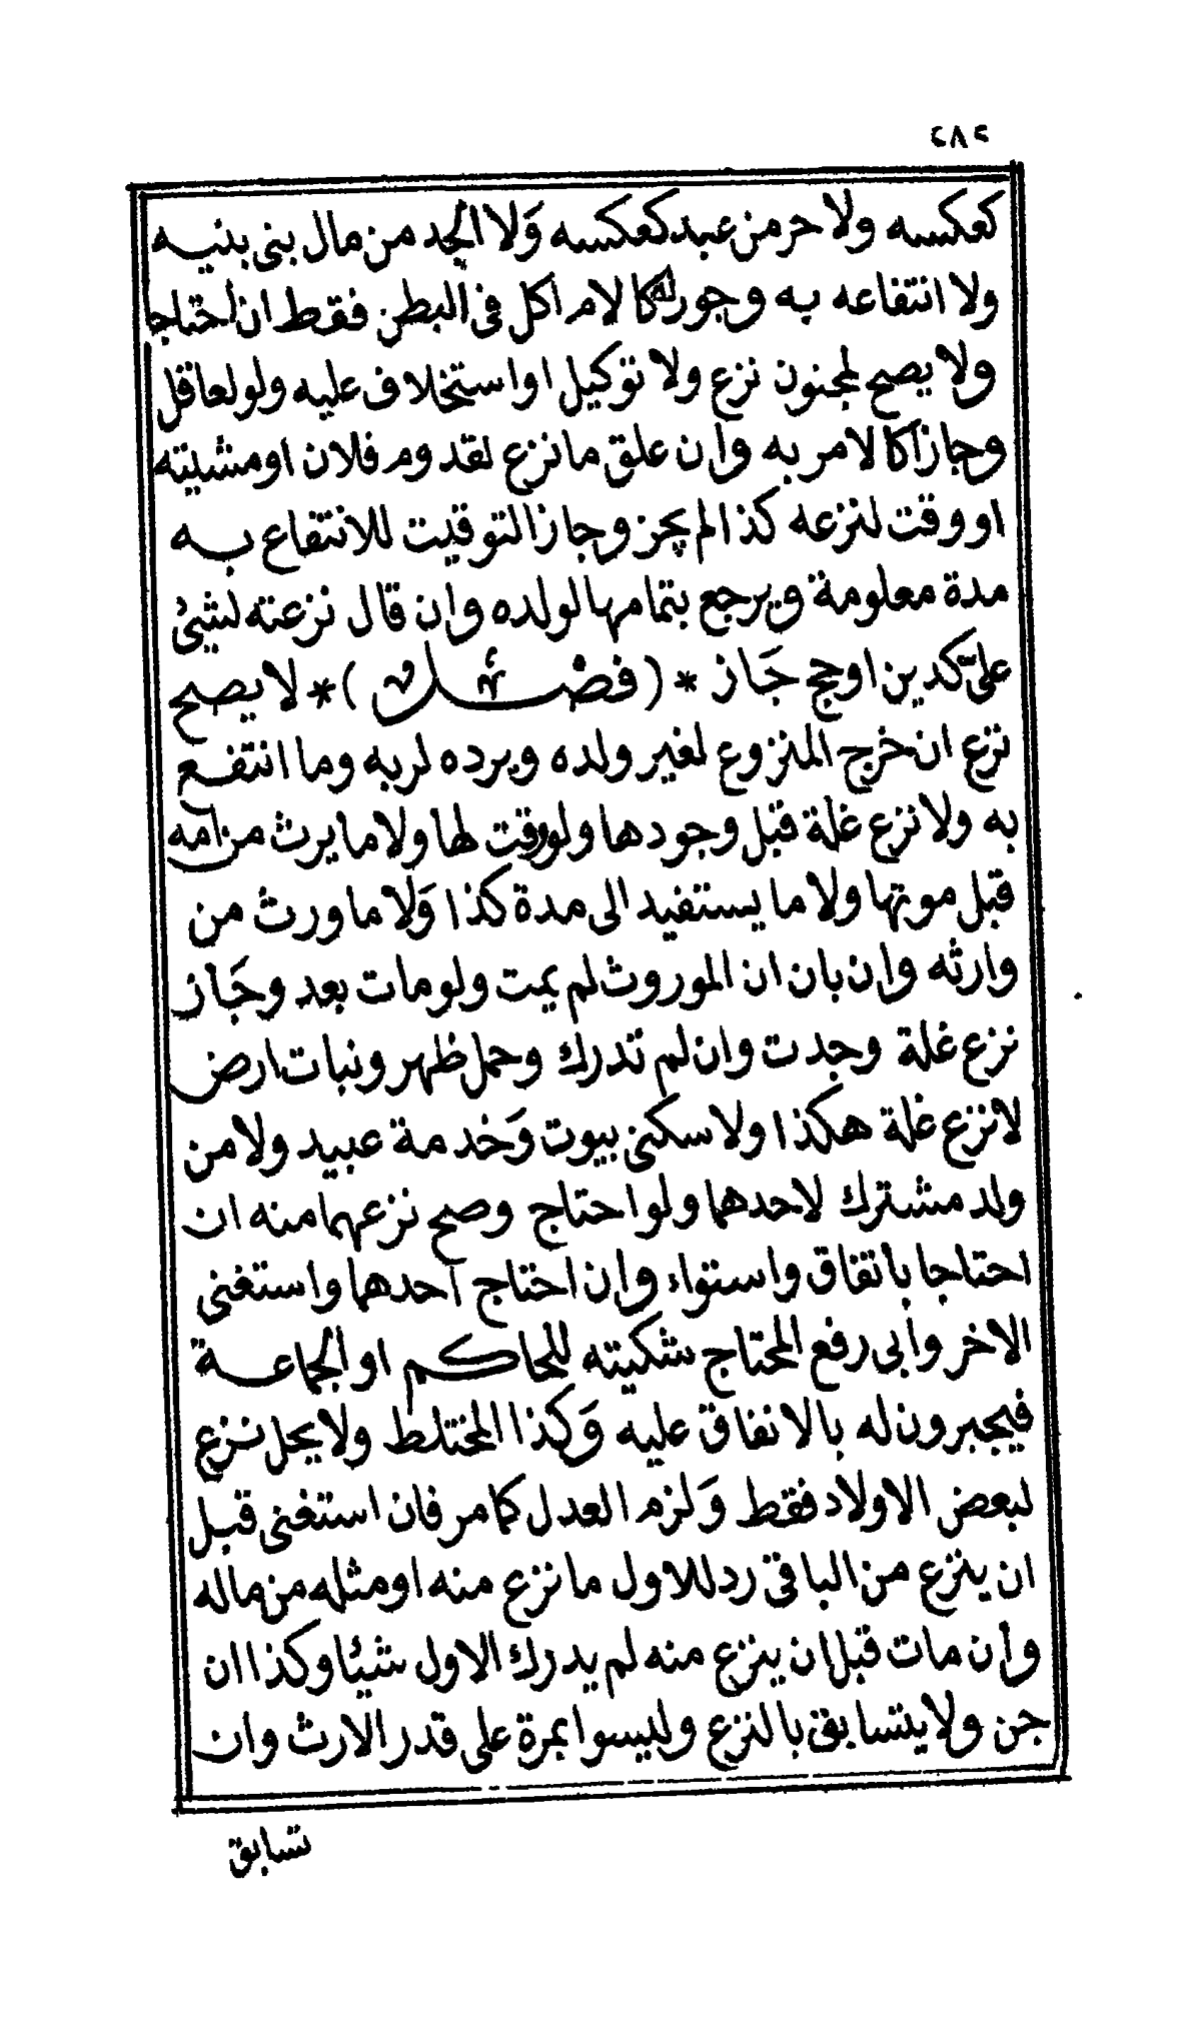 ٢٨٢
كعكسه ولا حر من عبد كعكسه وَلا الجد من مال بنى بنيه
ولا انتفاعه به وجوز له كالام اكل فى البطن فقط ان احتاجا
ولا يصح لمجنون نزع ولا توكيل او استخلاف عليه ولو لعاقل
وجاز كالامر به وان علق ما نزع لقدوم فلان او مشيئته
او وقت لنزعه كذا لم يجز وجاز التوقيت للانتفاع به
مدة معلومة ويرجع بتمامها لولده وان قال نزعته لشئ
علىّ كدين او حج جَاز * (فصل) * لا يصح
نزع ان خرج المنزوع لغير ولده ويرده لربه وما انتفع
به ولا نزع غلة قبل وجودها ولو وقت لها ولا ما يرث من امه
قبل موتها ولا ما يستفيد الى مدة كذا وَلا ما ورث من
وارثه وان بان ان الموروث لم يمت ولو مات بعد وجَاز
نزع غلة وجدت وان لم تدرك وحمل ظهر ونبات ارض
لا نزع غلة هكذا ولا سكنى بيوت وَخدمة عبيد ولا من
ولد مشترك لاحدهما ولو احتاج وصح نزعهما منه ان
احتاجا باتفاق واستواء وان احتاج احدهما واستغنى
الاخر وابى رفع المحتاج شكيته للحاكم او الجماعة
فيجبرون له بالانفاق عليه وَكذا المختلط ولا يحل نزع
لبعض الاولاد فقط وَلزم العدل كما مر فان استغنى قبل
ان ينزع من الباقى رد للاول ما نزع منه او مثله من ماله
وان مات قبل ان ينزع منه لم يدرك الاول شيئا وكذا ان
جن ولا يتسابق بالنزع وليسوا بمرة على قدر الارث وان
تسابق